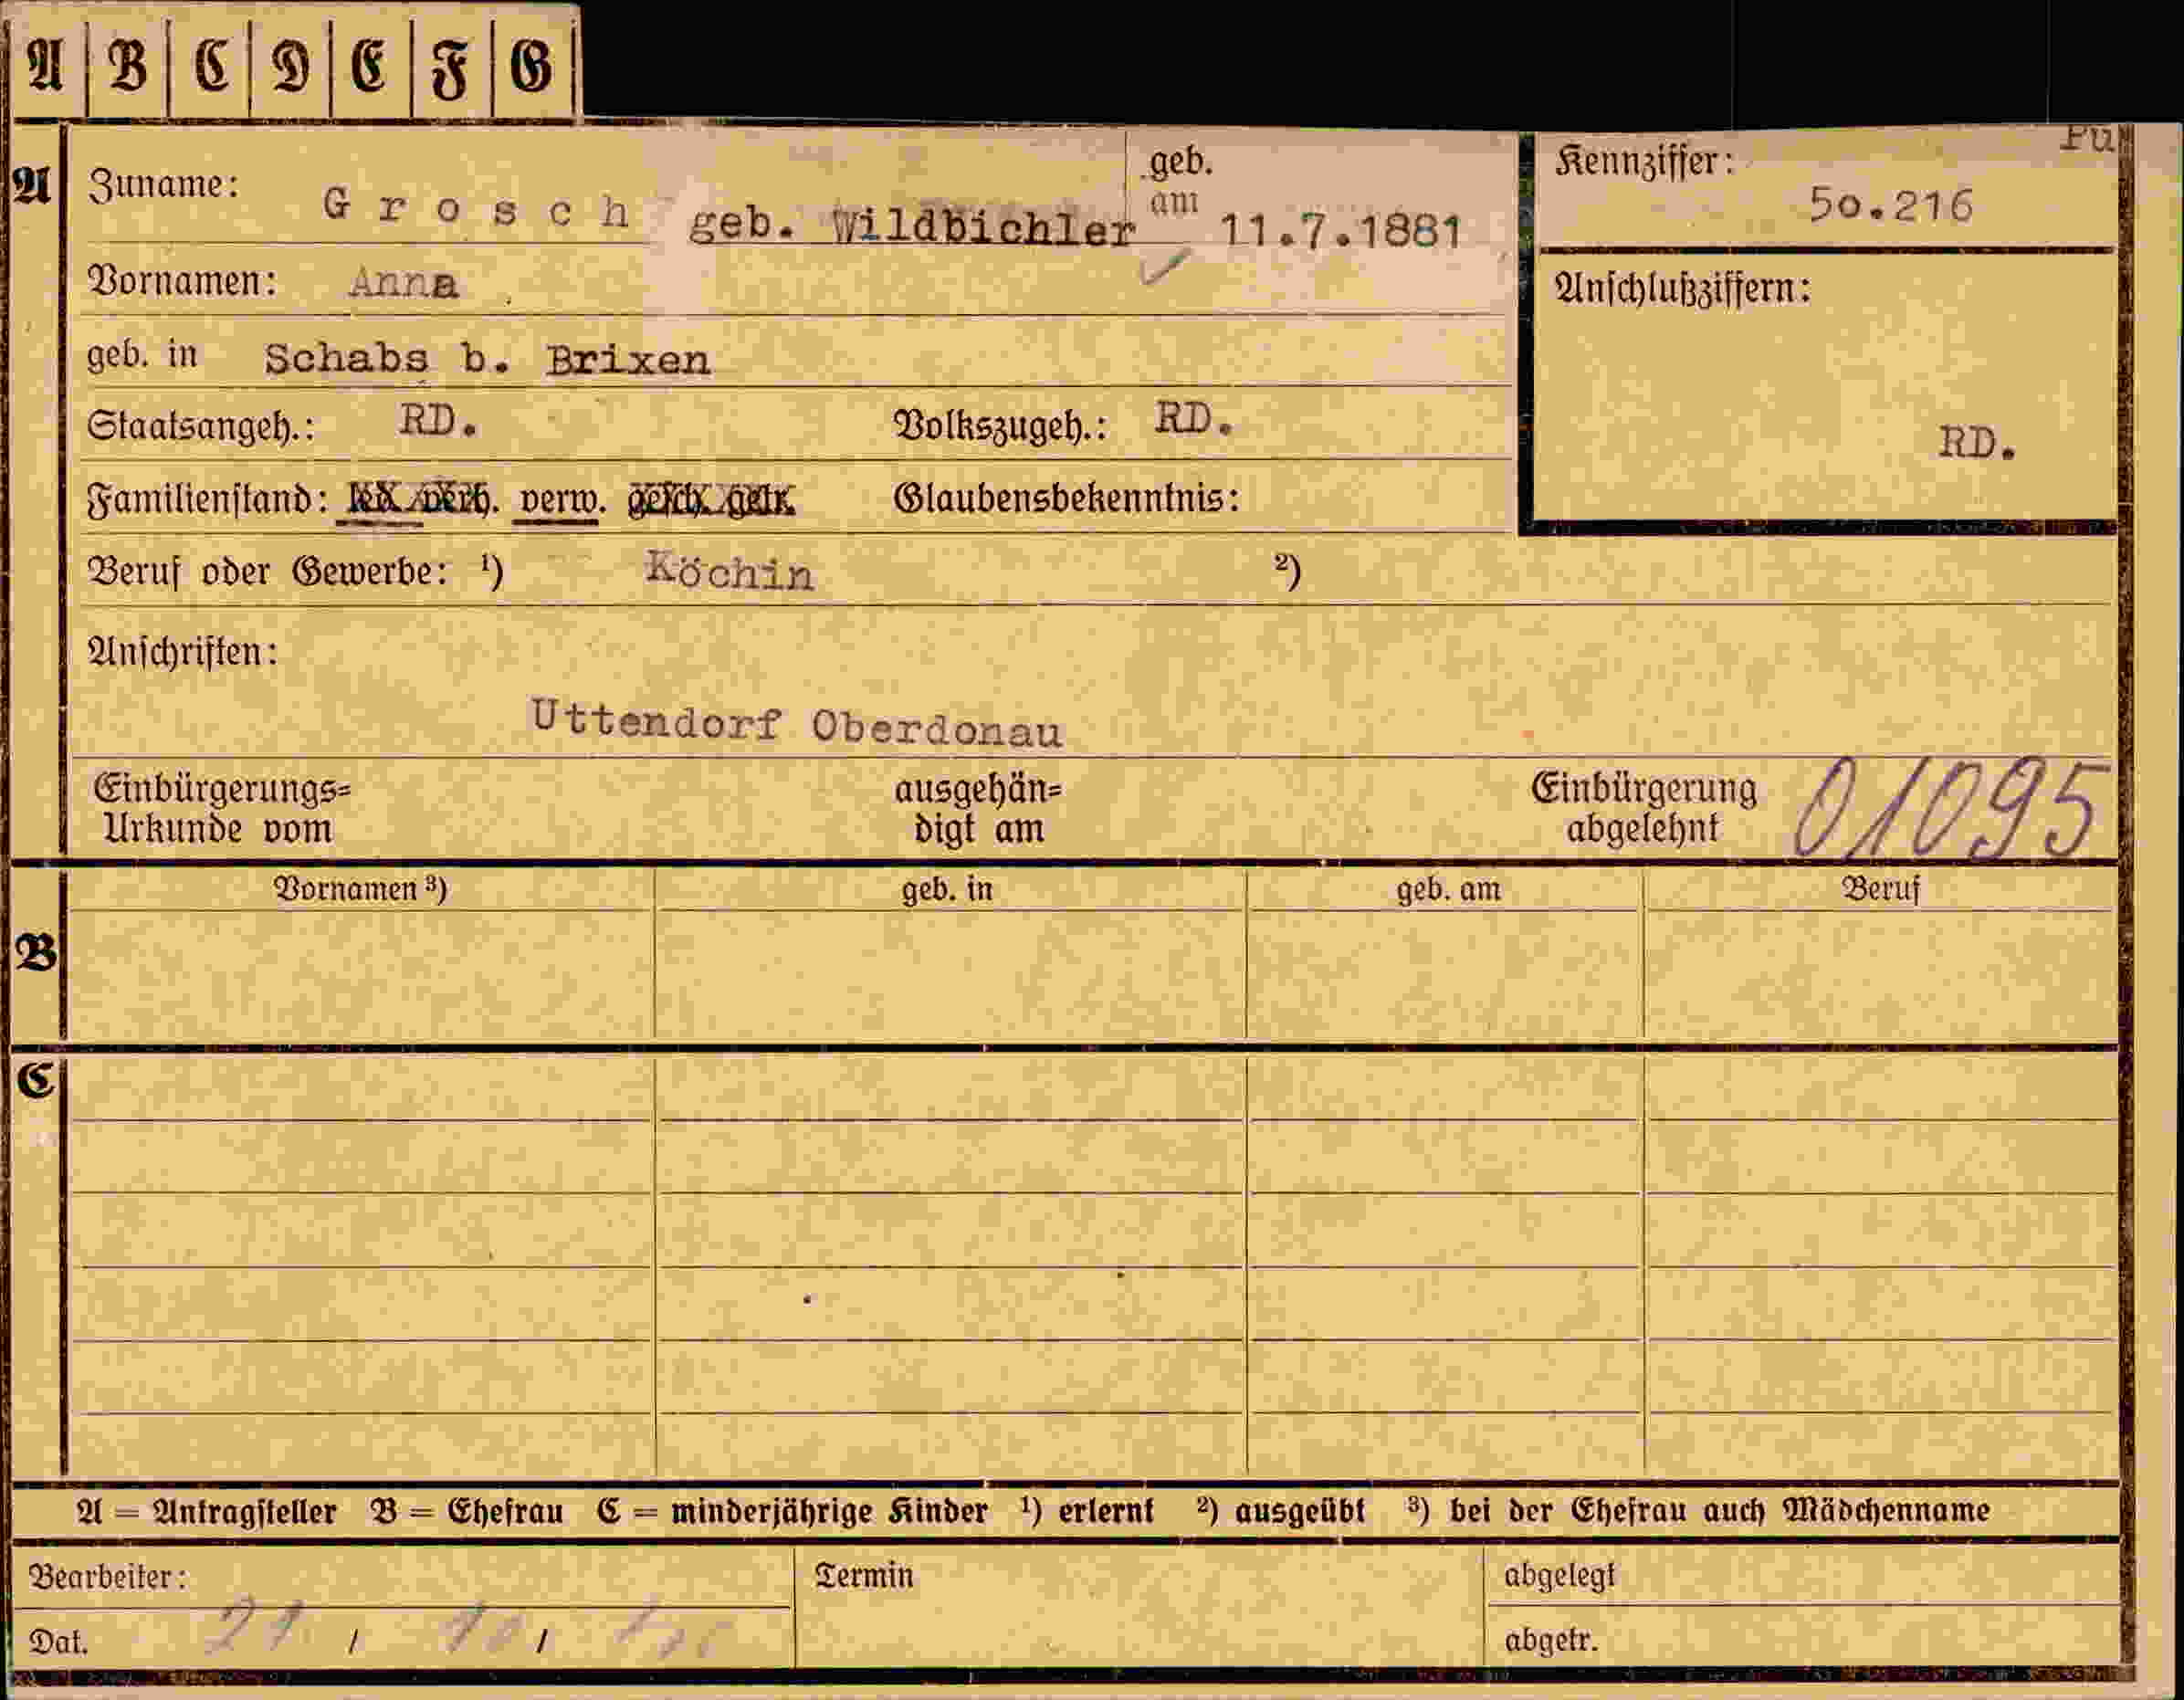 A B C D E F G
Pu
A
Zuname: Grosch geb. Wildbichler geb. am 11.7.1881
Kennziffer: 50.216
Vornamen: Anna
Anschlußziffern:
geb. in Schabs b. Brixen
Staatsangeh.: RD. Volkszugeh.: RD.
RD.
Familienstand: led. verh. verw. gesch. getr. Glaubensbekenntnis:
Beruf oder Gewerbe: ¹) Köchin ²)
Anschriften:
Uttendorf Oberdonau
Einbürgerungs= ausgehän= Einbürgerung 01095
Urkunde vom digt am abgelehnt
Vornamen ³) geb. in geb. am Beruf
B
C
A = Antragsteller B = Ehefrau C = minderjährige Kinder ¹) erlernt ²) ausgeübt ³) bei der Ehefrau auch Mädchenname
Bearbeiter: Termin abgelegt
Dat. / / abgetr.